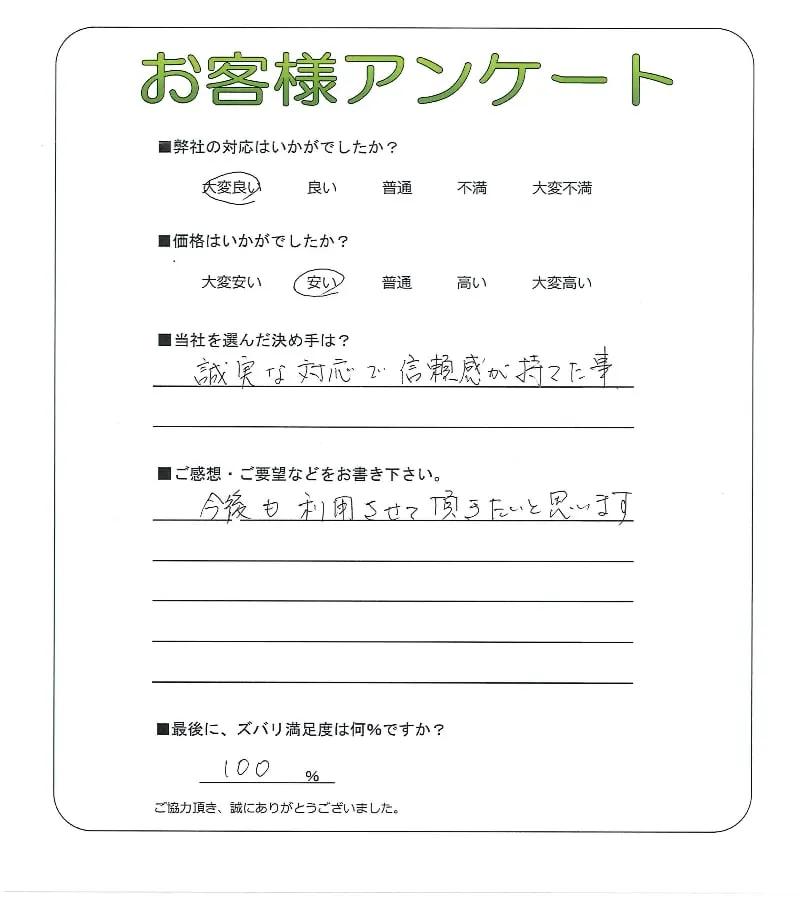 お客様アンケート
■弊社の対応はいかがでしたか？
大変良い 良い 普通 不満 大変不満
■価格はいかがでしたか？
大変安い 安い 普通 高い 大変高い
■当社を選んだ決め手は？
誠実な対応で信頼感が持てた事
■ご感想・ご要望などをお書き下さい。
今後も利用させて頂きたいと思います
■最後に、ズバリ満足度は何％ですか？
100 ％
ご協力頂き、誠にありがとうございました。